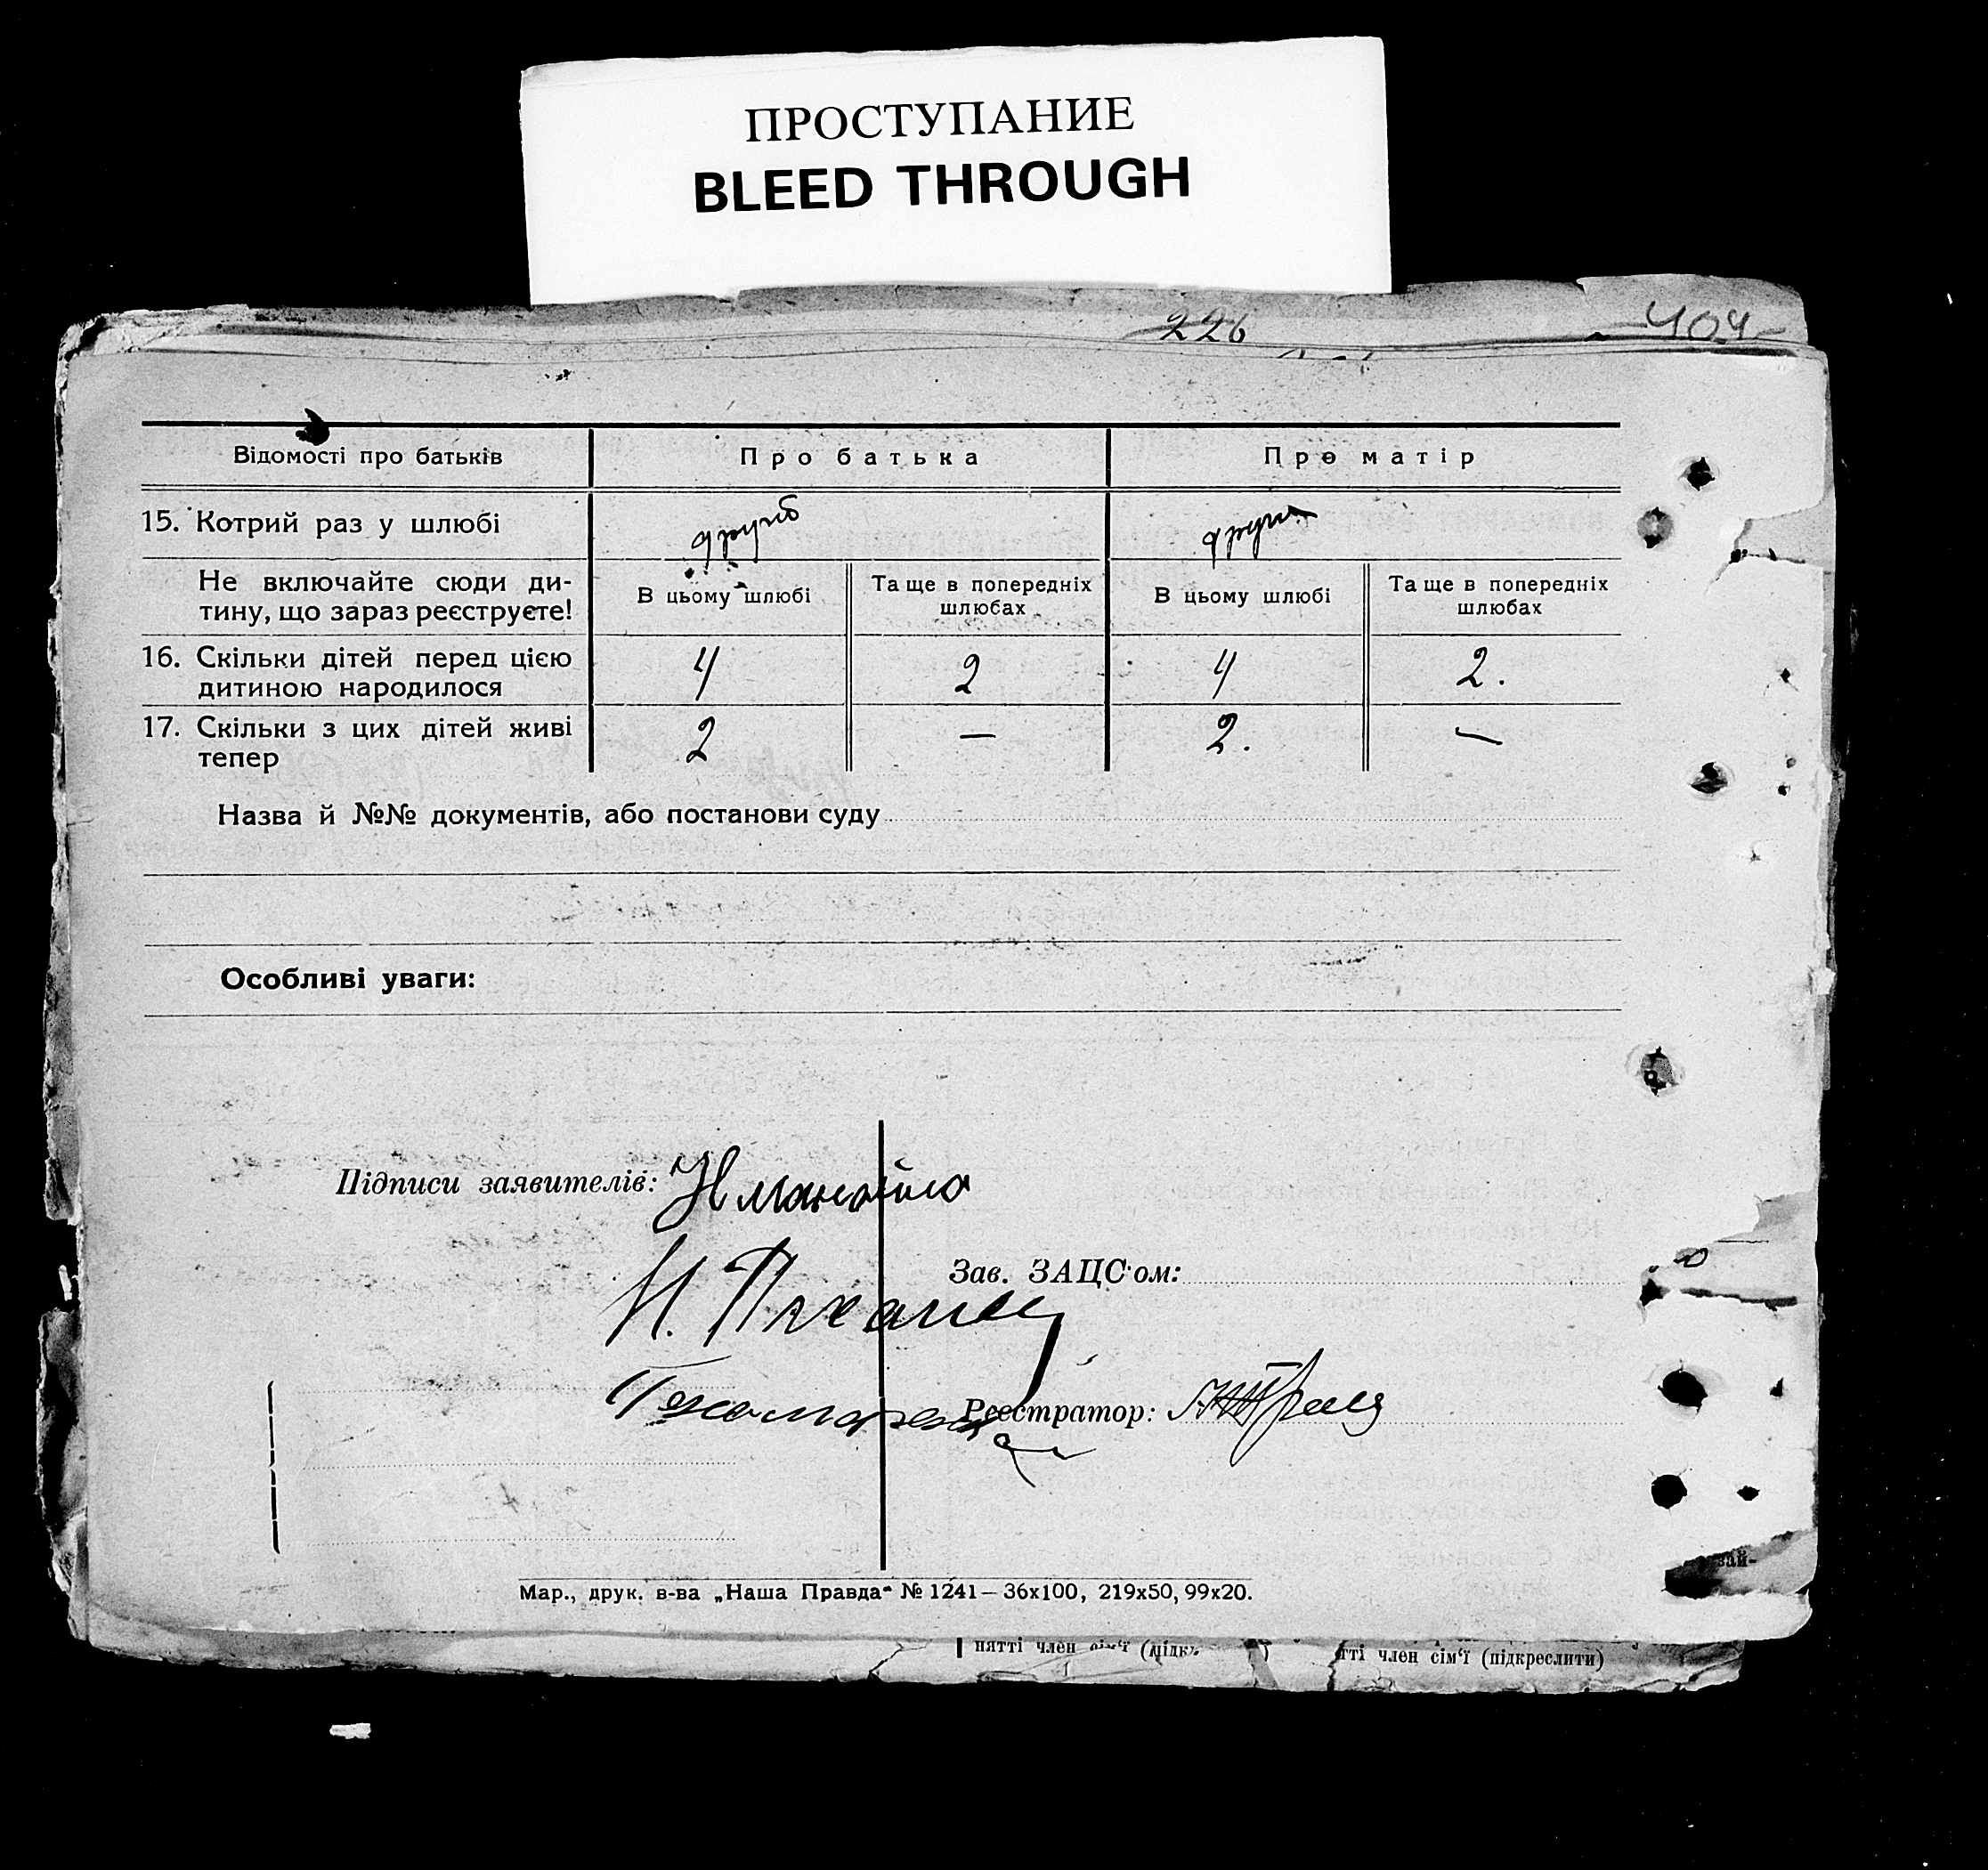 ПРОСТУПАНИЕ
BLEED THROUGH
226 404
Відомості про батьків Про батька Про матір
15. Котрий раз у шлюбі
Не включайте сюди ди-
тину, що зараз реєструєте!
В цьому шлюбі Та ще в попередніх шлюбах В цьому шлюбі Та ще в попередніх шлюбах
16. Скільки дітей перед цією
дитиною народилося 4 2 4 2.
17. Скільки з цих дітей живі
тепер 2 — 2. —
Назва й №№ документів, або постанови суду
Особливі уваги:
Підписи заявителів:
Зав. ЗАЦС'ом:
Реєстратор:
Мар., друк. в-ва „Наша Правда" № 1241 — 36х100, 219х50, 99х20.
зай-
нятті член
тті член сім'ї (підкреслити)